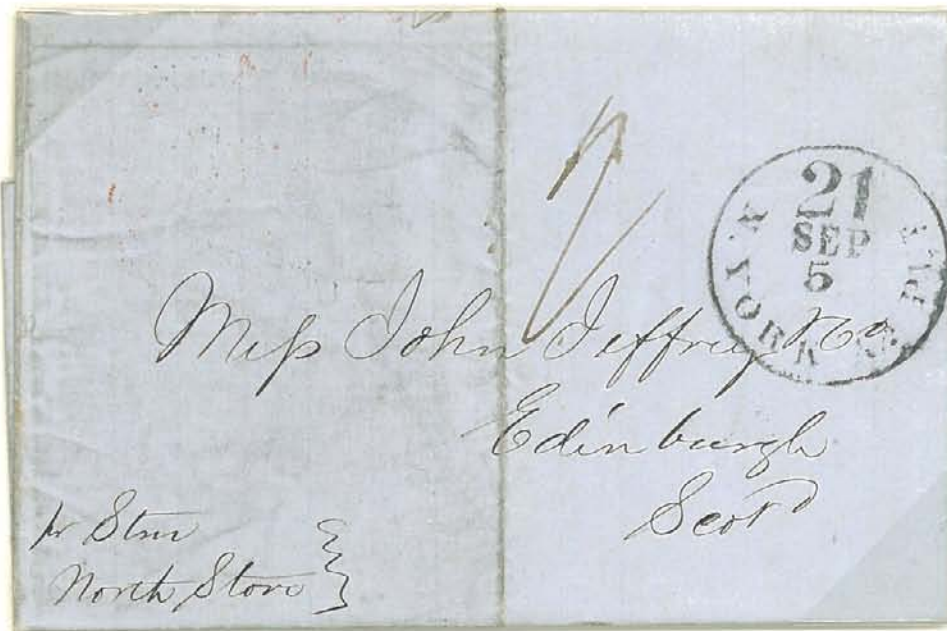 21
SEP
5
N. YORK BR. PKT
Mess John Jeffrey & Co
Edinburgh
Scotd
pr Stmr
North Star